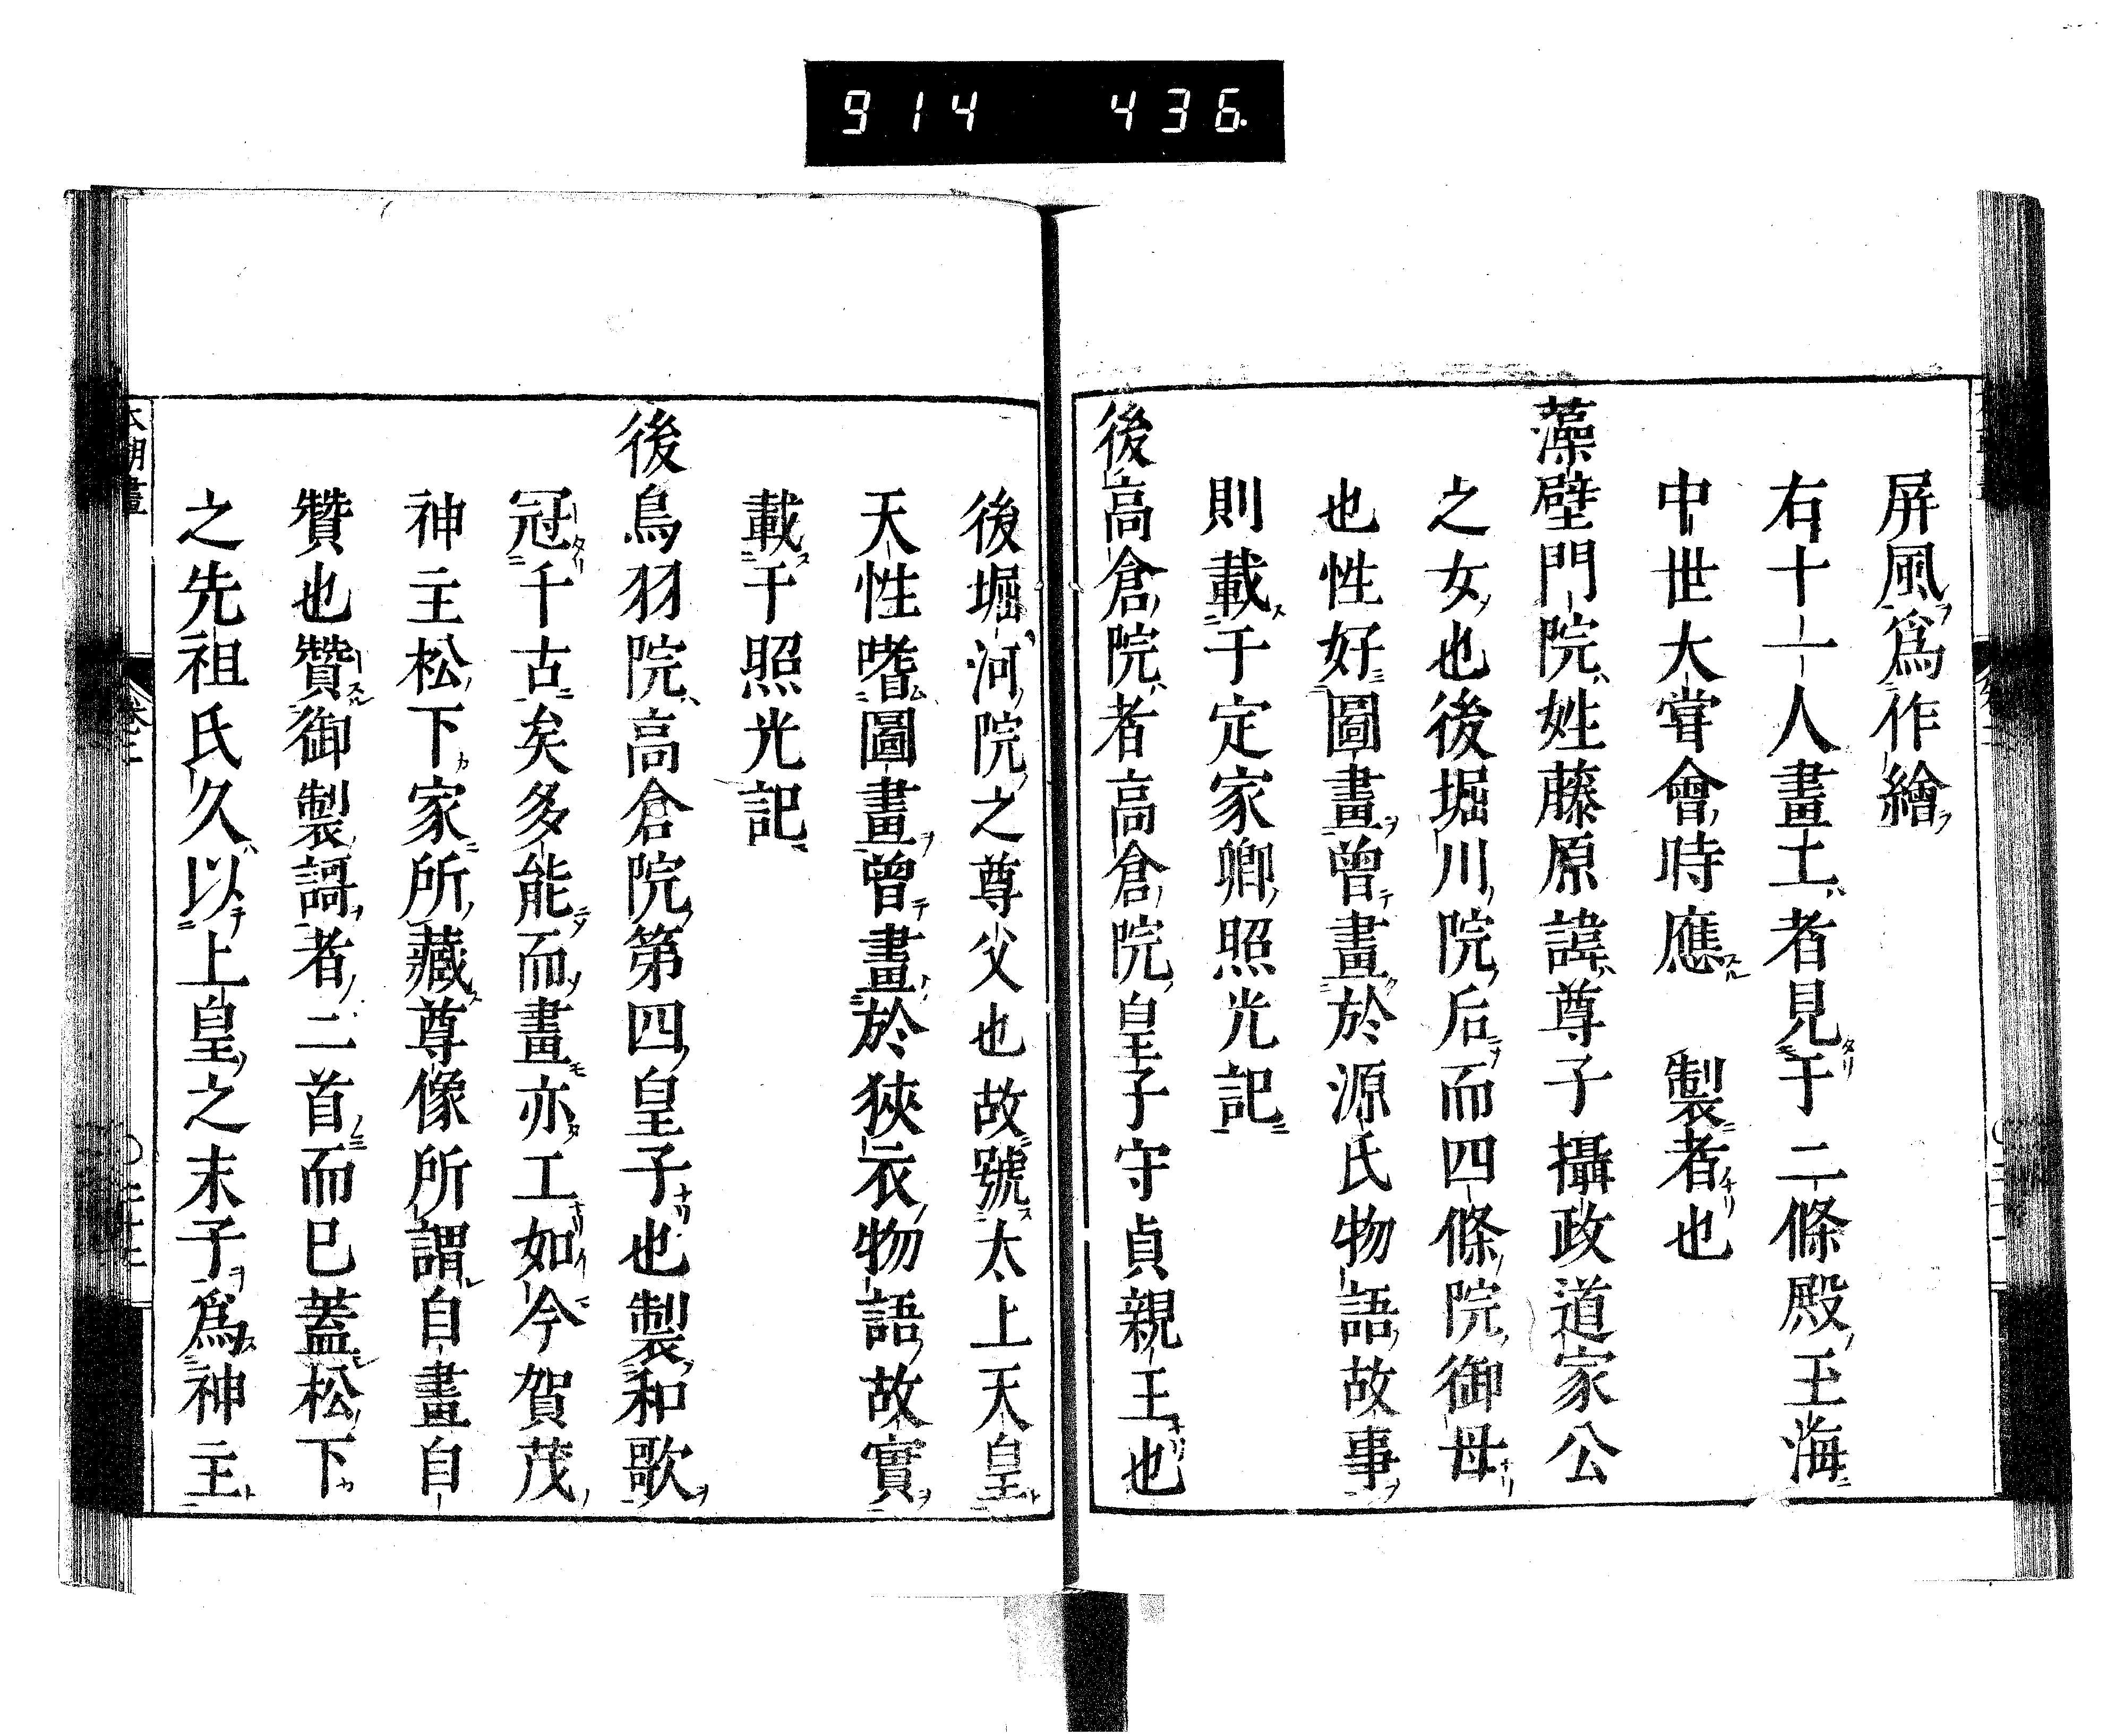 914 436
屏風爲作繪
右十一人畫士者見于二條殿玉海
中世大甞會時應　製者也
藻壁門院姓藤原諱尊子攝政道家公
之女也後堀川院后而四條院御母
也性好圖畫曾畫於源氏物語故事
則載于定家卿照光記
後高倉院者高倉院皇子守貞親王也
後堀河院之尊父也故號太上天皇
天性嗜圖畫曾畫於狹衣物語故實
載于照光記
後鳥羽院高倉院第四皇子也製和歌
冠千古矣多能而畫亦工如今賀茂
神主松下家所藏尊像所謂自畫自
贊也贊御製謌者二首而已蓋松下
之先祖氏久以上皇之末子爲神主